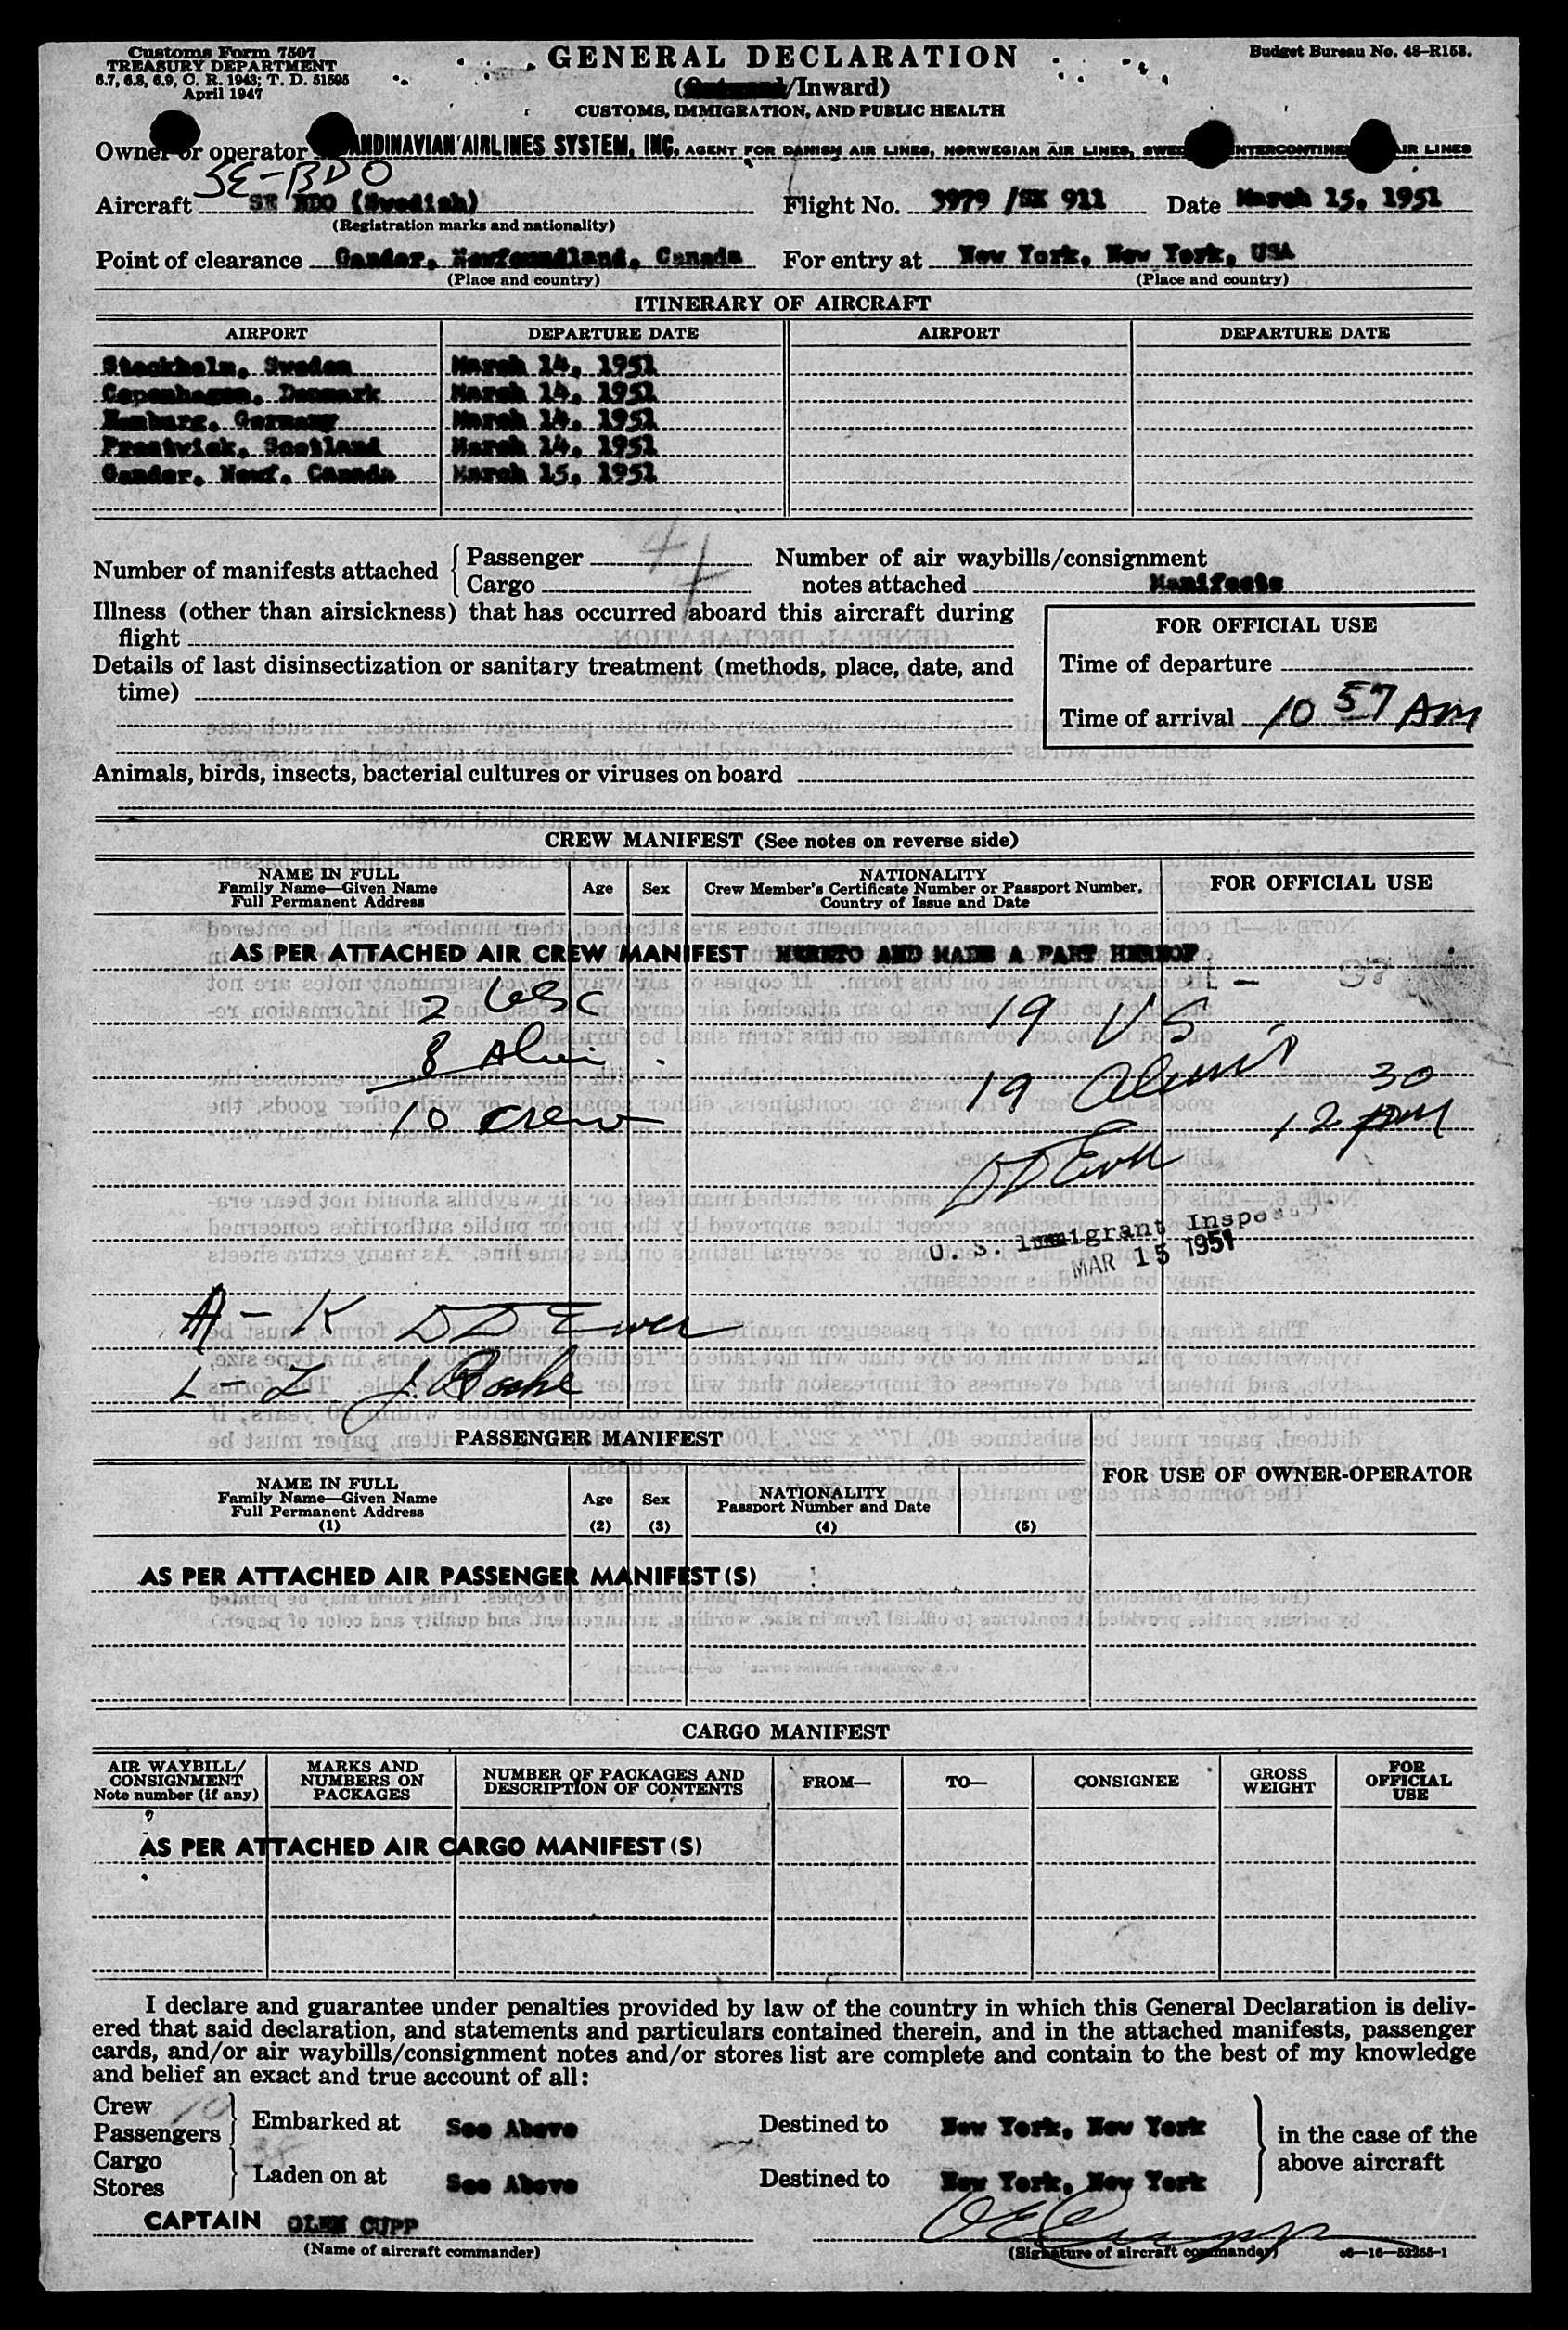 Customs Form 7507
TREASURY DEPARTMENT
6.7, 6.8, 6.9, C. R. 1943; T. D. 51595
April 1947
GENERAL DECLARATION
(/Inward)
CUSTOMS, IMMIGRATION, AND PUBLIC HEALTH
Budget Bureau No. 48-R153.
Owner or operator ANDINAVIAN AIRLINES SYSTEM, INC. AGENT FOR DANISH AIR LINES, NORWEGIAN AIR LINES, SWED NTERCONTINE AIR LINES
SE-BDO
Aircraft SE BDO (Swedish) Flight No. 3979 /SK 911 Date March 15, 1951
(Registration marks and nationality)
Point of clearance Gander, Newfoundland, Canada For entry at New York, New York, USA
(Place and country) (Place and country)
ITINERARY OF AIRCRAFT
AIRPORT DEPARTURE DATE AIRPORT DEPARTURE DATE
Stockholm, Sweden March 14, 1951
Copenhagen, Denmark March 14, 1951
Hamburg, Germany March 14, 1951
Prestwick, Scotland March 14, 1951
Gander, Newf. Canada March 15, 1951
Number of manifests attached { Passenger 4 Number of air waybills/consignment
Cargo notes attached Manifests
Illness (other than airsickness) that has occurred aboard this aircraft during
flight
Details of last disinsectization or sanitary treatment (methods, place, date, and
time)
FOR OFFICIAL USE
Time of departure
Time of arrival 10 57 AM
Animals, birds, insects, bacterial cultures or viruses on board
CREW MANIFEST (See notes on reverse side)
NAME IN FULL
Family Name—Given Name
Full Permanent Address
Age Sex
NATIONALITY
Crew Member's Certificate Number or Passport Number.
Country of Issue and Date
FOR OFFICIAL USE
AS PER ATTACHED AIR CREW MANIFEST HERETO AND MADE A PART HEREOF
2 USC 19 US
8 Alien 19 Aliens 30
10 crew 12 PM
U. S. Immigrant Inspector
MAR 15 1951
A - K
L - Z
PASSENGER MANIFEST
NAME IN FULL
Family Name—Given Name
Full Permanent Address
(1)
Age
(2)
Sex
(3)
NATIONALITY
Passport Number and Date
(4) (5)
FOR USE OF OWNER-OPERATOR
AS PER ATTACHED AIR PASSENGER MANIFEST(S)
CARGO MANIFEST
AIR WAYBILL/
CONSIGNMENT
Note number (if any)
MARKS AND
NUMBERS ON
PACKAGES
NUMBER OF PACKAGES AND
DESCRIPTION OF CONTENTS
FROM— TO— CONSIGNEE
GROSS
WEIGHT
FOR
OFFICIAL
USE
AS PER ATTACHED AIR CARGO MANIFEST(S)
I declare and guarantee under penalties provided by law of the country in which this General Declaration is deliv-
ered that said declaration, and statements and particulars contained therein, and in the attached manifests, passenger
cards, and/or air waybills/consignment notes and/or stores list are complete and contain to the best of my knowledge
and belief an exact and true account of all:
Crew 10
Passengers } Embarked at See Above Destined to New York, New York
Cargo
Stores } Laden on at See Above Destined to New York, New York
} in the case of the
above aircraft
CAPTAIN OLEN CUPP
(Name of aircraft commander) (Signature of aircraft commander) 66—16—52255-1